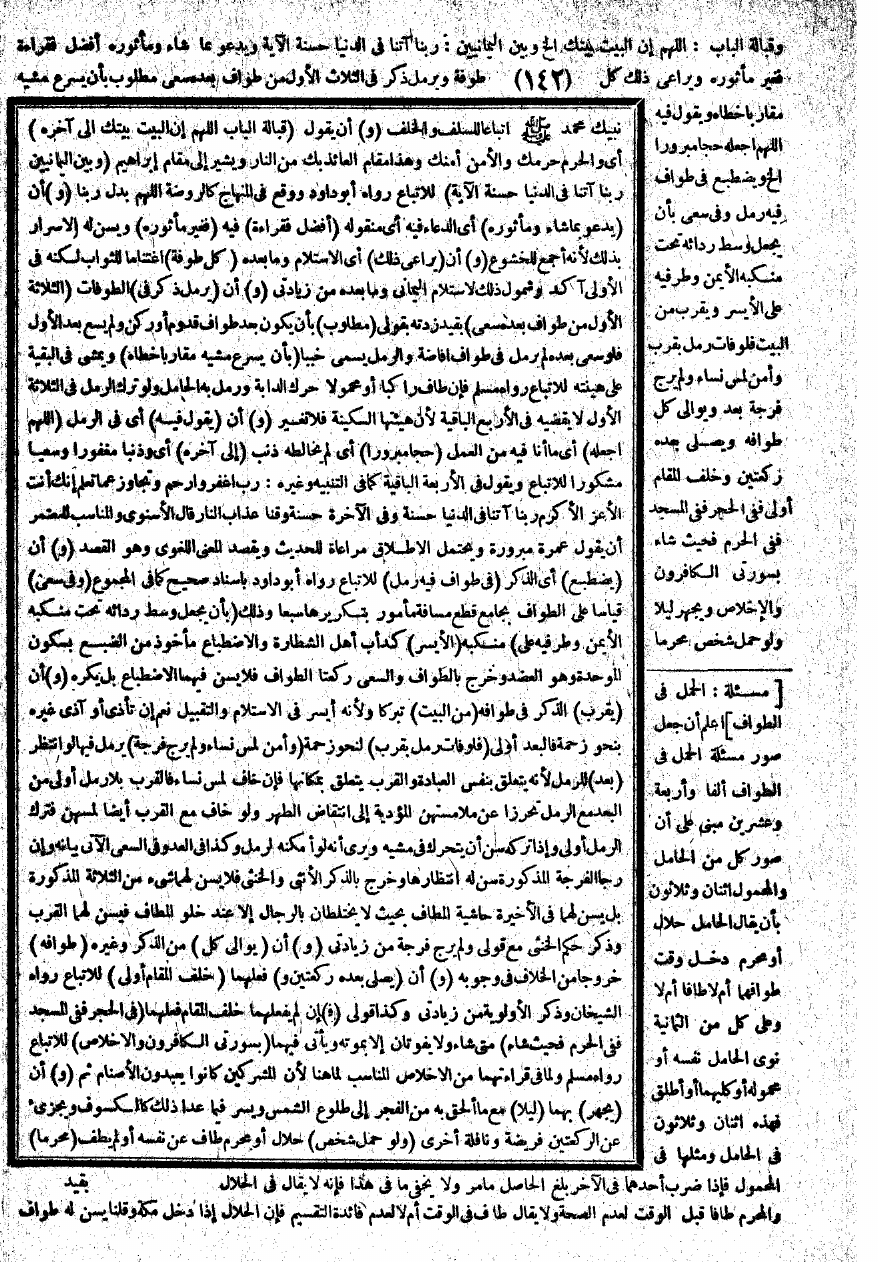 وقبالة الباب : اللهم إن البيت بيتك الخ وبين اليمانيين : ربنا آتنا فى الدنيا حسنة الآية ويدعو بما شاء ومأثوره أفضل فقراءة
فغير مأثوره ويراعى ذلك كل (١٤٢) طوفة ويرمل ذكر فى الثلاث الأول من طواف بعده سعى مطلوب بأن يسرع مشيه
مقاربا خطاه ويقول فيه
اللهم اجعله حجا مبرورا
الخ ويضطبع فى طواف
فيه رمل وفى سعى بأن
يجعل وسط ردائه تحت
منكبه الأيمن وطرفيه
على الأيسر ويقرب من
البيت فلو فات رمل بقرب
وأمن لمس نساء ولم يرج
فرجة بعد ويوالى كل
طوافه ويصلى بعده
ركعتين وخلف المقام
أولى ففى الحجر ففى المسجد
ففى الحرم فحيث شاء
بسورتى الكافرون
والإخلاص ويجهر ليلا
ولو حمل شخص محرما
نبيك محمد ﷺ اتباعا للسلف والخلف (و) أن يقول (قبالة الباب اللهم إن البيت بيتك الى آخره)
أى والحرم حرمك والأمن أمنك وهذا مقام العائذ بك من النار ويشير إلى مقام إبراهيم (وبين اليمانيين
ربنا آتنا فى الدنيا حسنة الآية) للاتباع رواه أبو داود ووقع فى المنهاج كالروضة اللهم بدل ربنا (و) أن
(يدعو بما شاء ومأثوره) أى الدعاء فيه أى منقوله (أفضل فقراءة) فيه (فغير مأثوره) ويسن له الإسرار
بذلك لأنه أجمع للخشوع (و) أن (يراعى ذلك) أى الاستلام وما بعده (كل طوفة) اغتناما للثواب لكنه فى
الأولى آكد وشمول ذلك لاستلام اليمانى وما بعده من زيادتى (و) أن (يرمل ذكر فى) الطوفات (الثلاثة
الأول من طواف بعده سعى) بقيد زدته بقولى (مطلوب) بأن يكون بعد طواف قدوم أو ركن ولم يسع بعد الأول
فلو سعى بعده لم يرمل فى طواف إفاضة والرمل يسمى خببا (بأن يسرع مشيه مقاربا خطاه) ويمشى فى البقية
على هينته للاتباع رواه مسلم فإن طاف راكبا أو محمولا حرك الدابة ورمل به الحامل ولو ترك الرمل فى الثلاثة
الأول لا يقضيه فى الأربع الباقية لأن هيئتها السكينة فلا تغير (و) أن (يقول فيه) أى فى الرمل (اللهم
اجعله) أى ما أنا فيه من العمل (حجا مبرورا) أى لم يخالطه ذنب (إلى آخره) أى وذنبا مغفورا وسعيا
مشكورا للاتباع ويقول فى الأربعة الباقية كما فى التنبيه وغيره : رب اغفر وارحم وتجاوز عما تعلم إنك أنت
الأعز الأكرم ربنا آتنا فى الدنيا حسنة وفى الآخرة حسنة وقنا عذاب النار قال الأسنوى والمناسب للمعتمر
أن يقول عمرة مبرورة ويحتمل الاطلاق مراعاة للحديث ويقصد المعنى اللغوى وهو القصد (و) أن
(يضطبع) أى الذكر (فى طواف فيه رمل) للاتباع رواه أبو داود باسناد صحيح كما فى المجموع (وفى سعى)
قياسا على الطواف بجامع قطع مسافة مأمور بتكريرها سبعا وذلك (بأن يجعل وسط ردائه تحت منكبه
الأيمن وطرفيه على) منكبه (الأيسر) كدأب أهل الشطارة والاضطباع مأخوذ من الضبع بسكون
الموحدة وهو العضد وخرج بالطواف والسعى ركعتا الطواف فلا يسن فيهما الاضطباع بل يكره (و) أن
(يقرب) الذكر فى طوافه (من البيت) تبركا ولأنه أيسر فى الاستلام والتقبيل نعم إن تأذى أو آذى غيره
بنحو زحمة فالبعد أولى (فلو فات رمل بقرب) لنحو زحمة (وأمن لمس نساء ولم يرج فرجة) يرمل فيها لو انتظر
(بعد) للرمل لأنه يتعلق بنفس العبادة والقرب يتعلق بمكانها فإن خاف لمس نساء فالقرب بلا رمل أولى من
البعد مع الرمل تحرزا عن ملامستهن المؤدية إلى انتقاض الطهر ولو خاف مع القرب أيضا لمسهن فترك
الرمل أولى وإذا تركه سن أن يتحرك فى مشيه ويرى أنه لو أمكنه لرمل وكذا فى العدو فى السعى الآتى بيانه وإن
رجا الفرجة المذكورة سن له انتظارها وخرج بالذكر الأنثى والخنثى فلا يسن لهما شىء من الثلاثة المذكورة
بل يسن لهما فى الأخيرة حاشية المطاف بحيث لا يختلطان بالرجال إلا عند خلو المطاف فيسن لهما القرب
وذكر حكم الخنثى مع قولى ولم يرج فرجة من زيادتى (و) أن (يوالى كل) من الذكر وغيره (طوافه)
خروجا من الخلاف فى وجوبه (و) أن (يصلى بعده ركعتين و) فعلهما (خلف المقام أولى) للاتباع رواه
الشيخان وذكر الأولوية من زيادتى وكذا قولى (ف) إن لم يفعلهما خلف المقام فعلهما (فى الحجر ففى المسجد
ففى الحرم فحيث شاء) متى شاء ولا يفوتان إلا بموته ويأتى فيهما (بسورتى الكافرون والاخلاص) للاتباع
رواه مسلم ولما فى قراءتهما من الاخلاص المناسب لما هنا لأن المشركين كانوا يعبدون الأصنام ثم (و) أن
(يجهر) بهما (ليلا) مع ما ألحق به من الفجر إلى طلوع الشمس ويسر فيما عدا ذلك كالكسوف ويجزىء
عن الركعتين فريضة ونافلة أخرى (ولو حمل شخص) حلال أو محرم طاف عن نفسه أو لم يطف (محرما)
[مسئلة : الحمل فى
الطواف] اعلم أن جعل
صور مسئلة الحمل فى
الطواف ألفا وأربعة
وعشرين مبنى على أن
صور كل من الحامل
والمحمول اثنان وثلاثون
بأن يقال الحامل حلال
أو محرم دخل وقت
طوافهما أم لا طافا أم لا
وعلى كل من الثمانية
نوى الحامل نفسه أو
محموله أو كليهما أو أطلق
فهذه اثنان وثلاثون
فى الحامل ومثلها فى
المحمول فإذا ضرب أحدهما فى الآخر بلغ الحاصل ما مر ولا يخفى ما فى هذا فإنه لا يقال فى الحلال بقيد
والمحرم طافا قبل الوقت لعدم الصحة ولا يقال طاف فى الوقت أم لا لعدم فائدة التقسيم فإن الحلال إذا دخل مكة وقلنا يسن له طواف